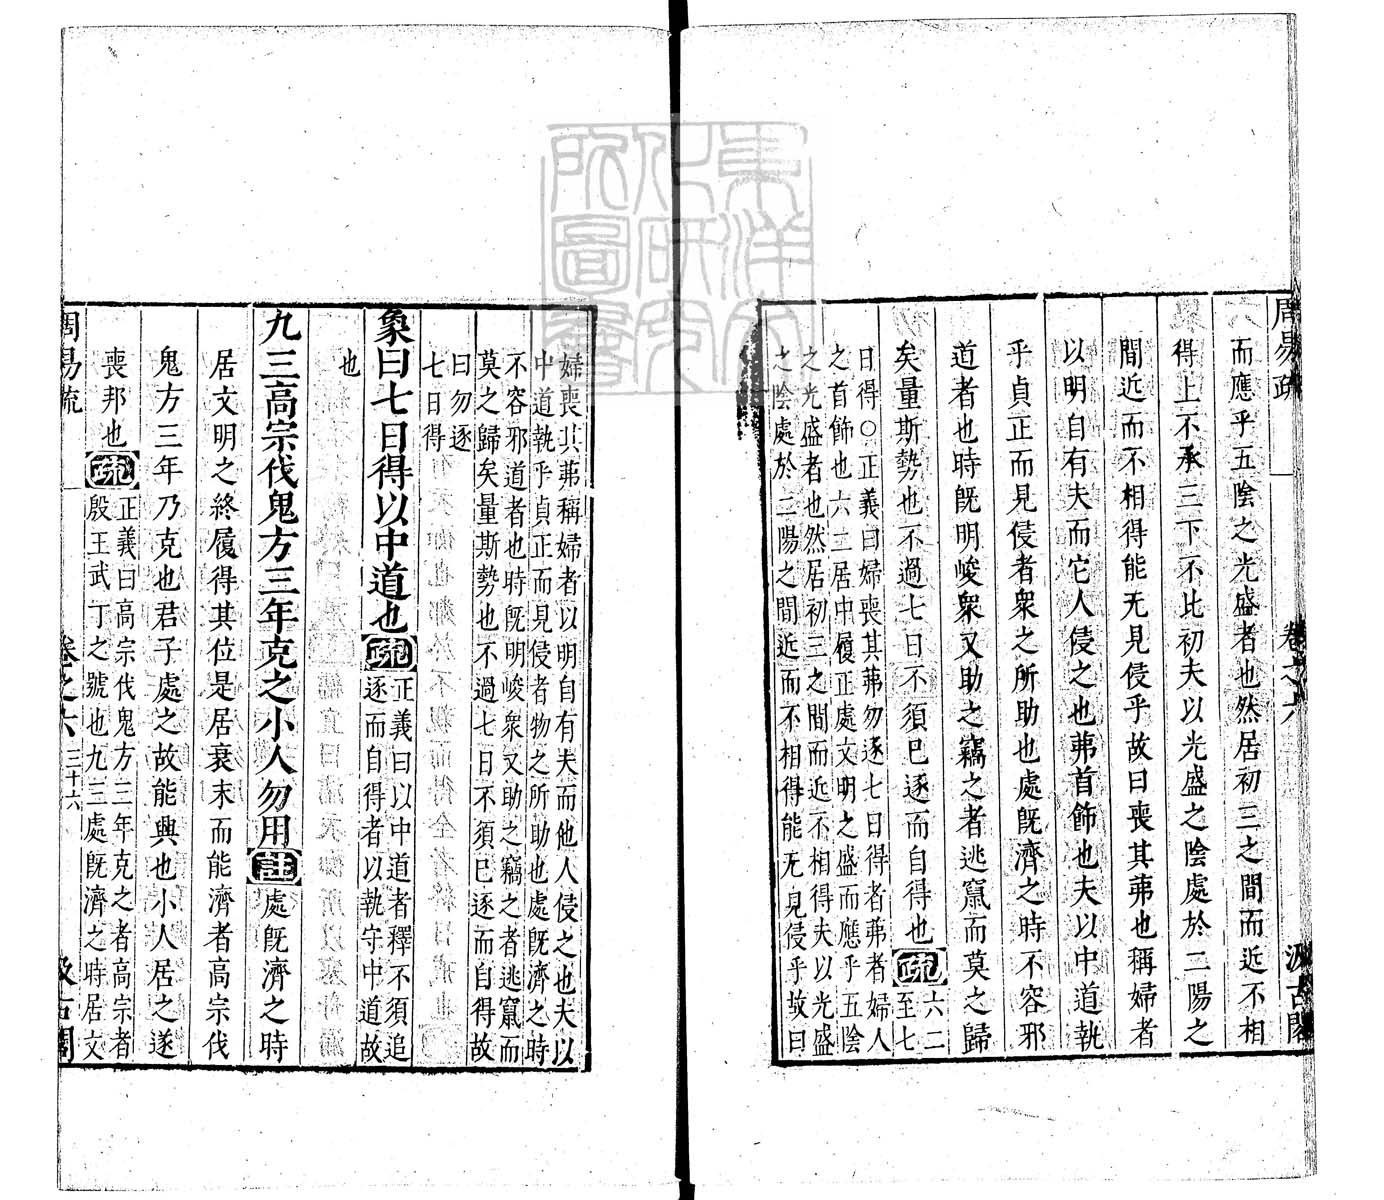 周易疏
卷之六
汲古閣
而應乎五陰之光盛者也然居初三之間而近不相
得上不承三下不比初夫以光盛之陰處於二陽之
間近而不相得能无見侵乎故曰喪其茀也稱婦者
以明自有夫而它人侵之也茀首飾也夫以中道執
乎貞正而見侵者衆之所助也處既濟之時不容邪
道者也時既明峻衆又助之竊之者逃竄而莫之歸
矣量斯勢也不過七日不須巳逐而自得也疏六二
至七
日得○正義曰婦喪其茀勿逐七日得者茀者婦人
之首飾也六二居中履正處文明之盛而應乎五陰
之光盛者也然居初三之間而近不相得夫以光盛
之陰處於二陽之間近而不相得能无見侵乎故曰
婦喪其茀稱婦者以明自有夫而他人侵之也夫以
中道執乎貞正而見侵者物之所助也處既濟之時
不容邪道者也時既明峻衆又助之竊之者逃竄而
莫之歸矣量斯勢也不過七日不須巳逐而自得故
曰勿逐
七日得
象曰七日得以中道也疏正義曰以中道者釋不須追
逐而自得者以執守中道故
也
九三高宗伐鬼方三年克之小人勿用註處既濟之時
居文明之終履得其位是居衰末而能濟者高宗伐
鬼方三年乃克也君子處之故能興也小人居之遂
喪邦也疏正義曰高宗伐鬼方三年克之者高宗者
殷王武丁之號也九三處既濟之時居文
周易疏
卷之六
三十六
汲古閣
東洋文
化研究
所圖書